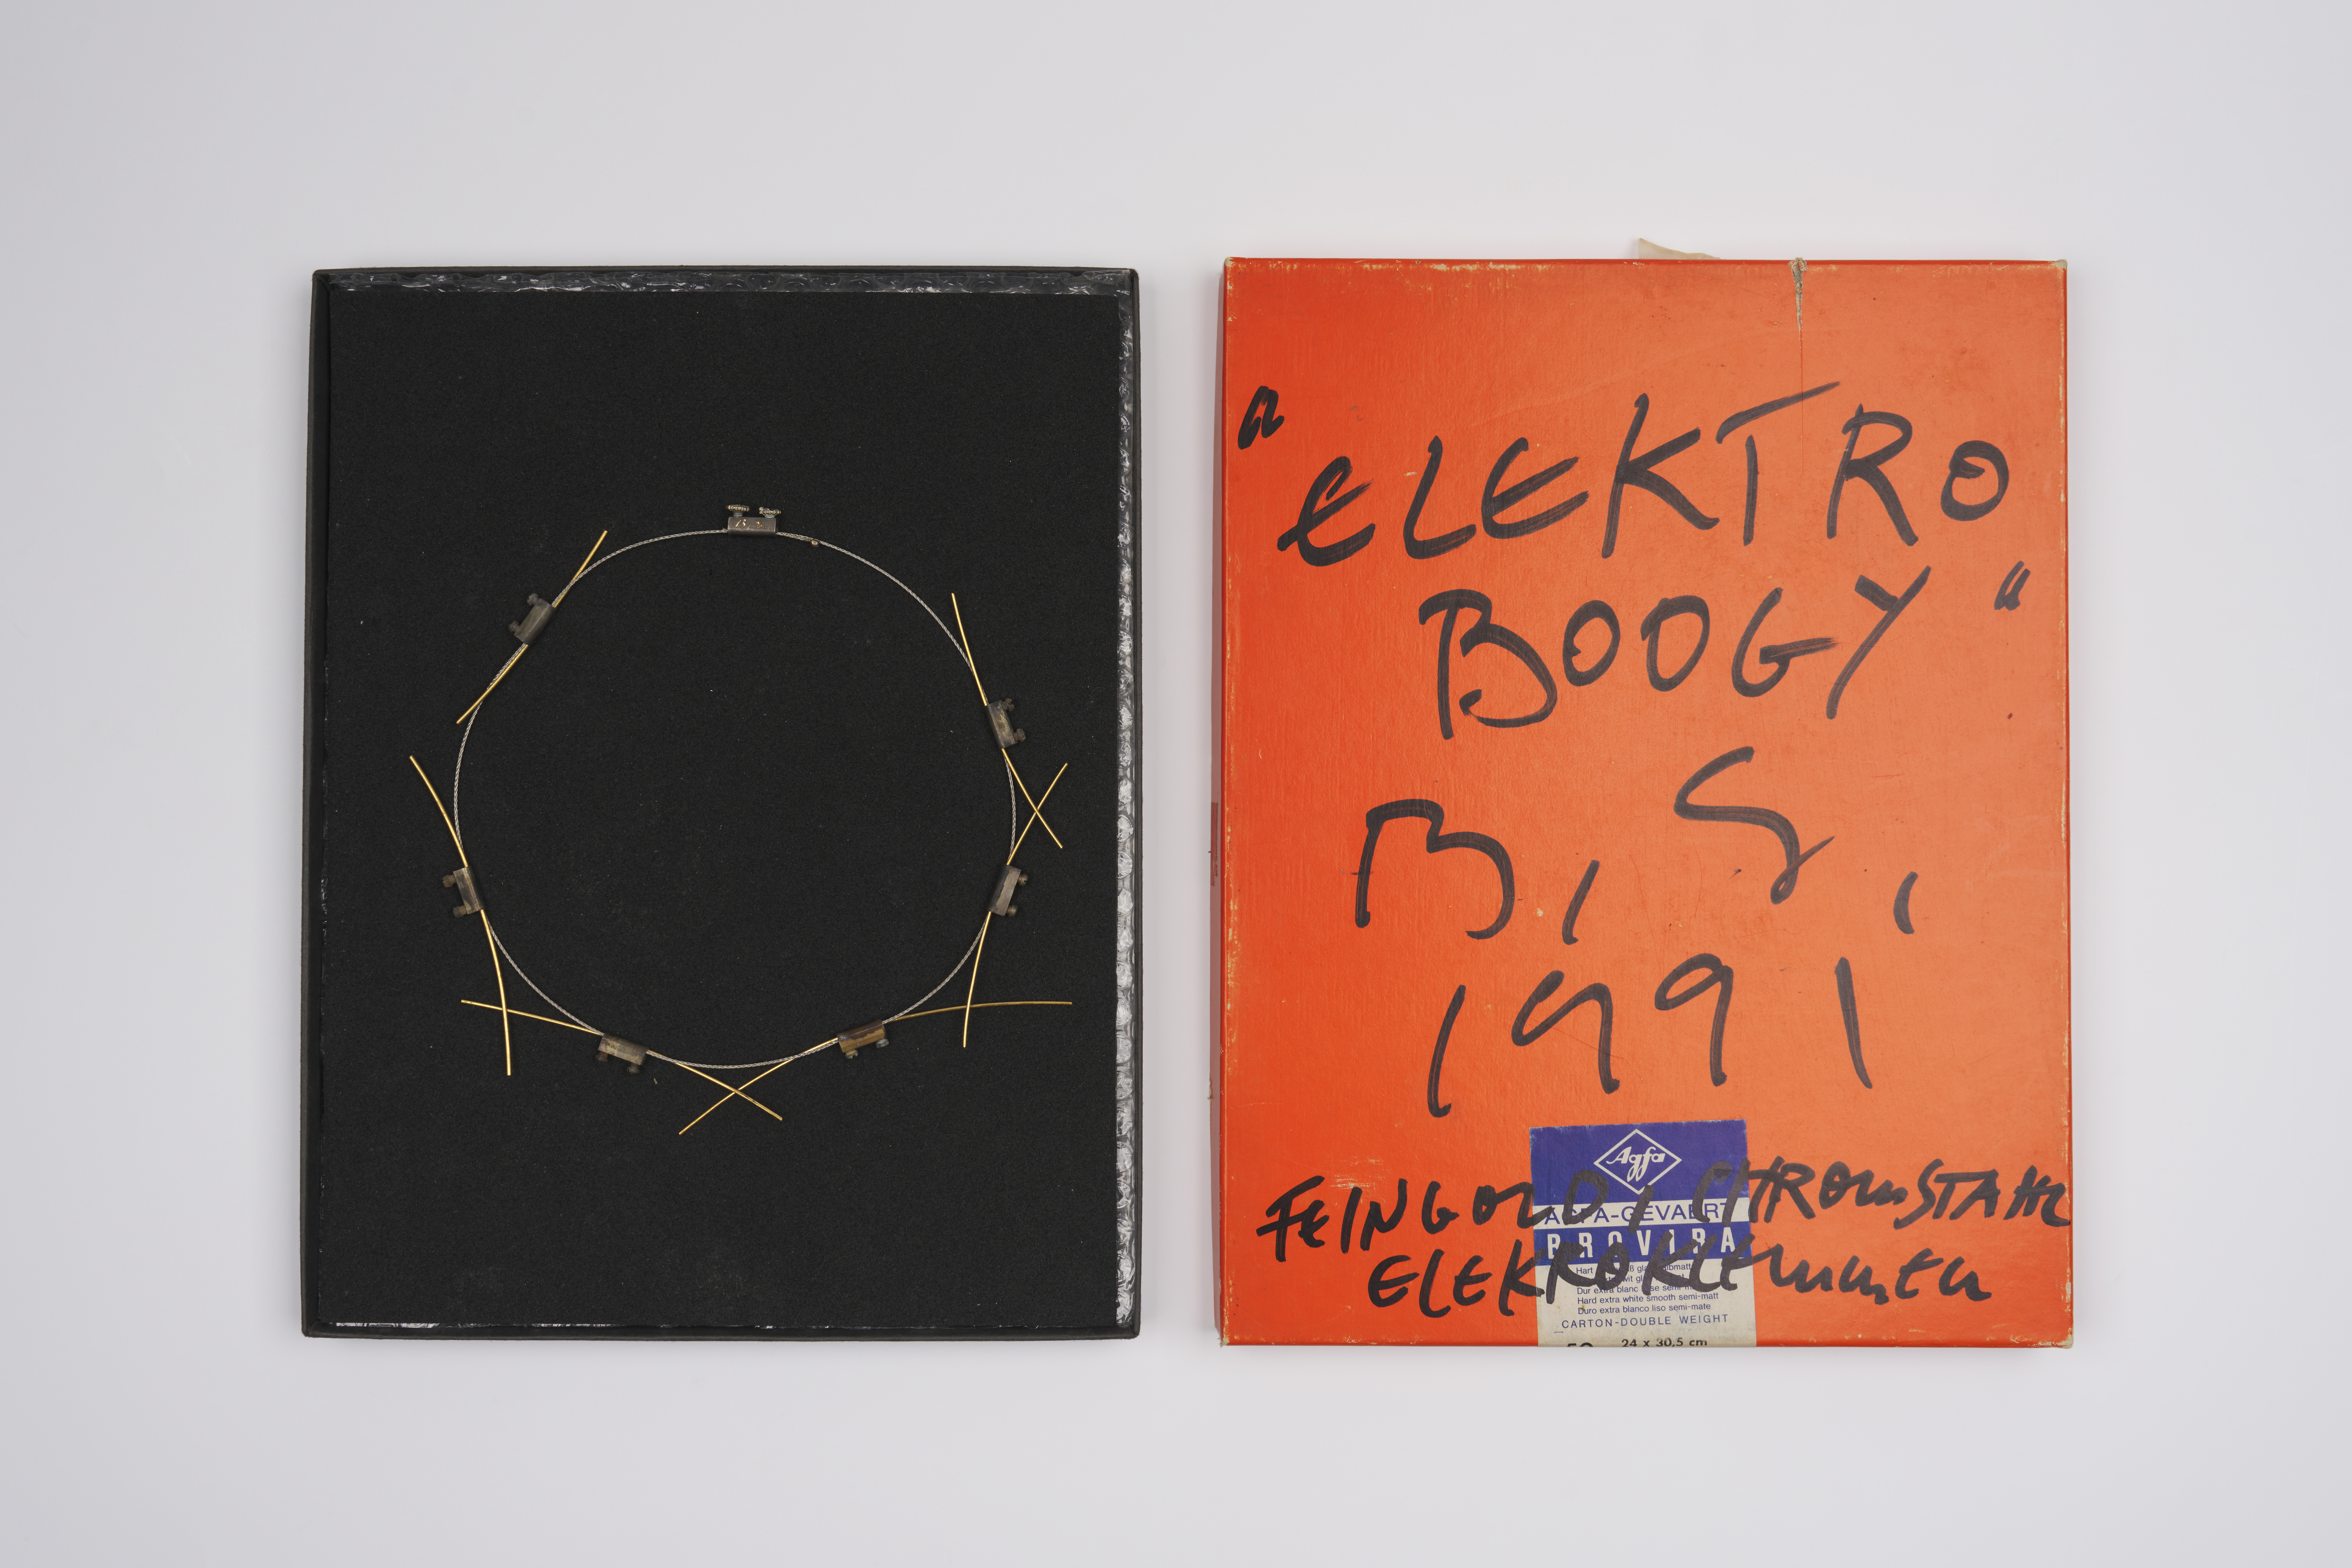 "ELEKTRO
BOOGY"
B, S,
1991
FEINGOLD, CHROmSTAHL
ELEKROKLEmmEn
Agfa
AGFA-GEVAERT
PROVIRA
Hart
Dur extra blanc
Hard extra white smooth semi-matt
Duro extra blanco liso semi-mate
CARTON-DOUBLE WEIGHT
50 24 x 30,5 cm